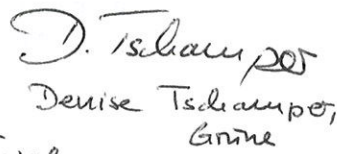 D. Tschamper
Denise Tschamper,
Grüne